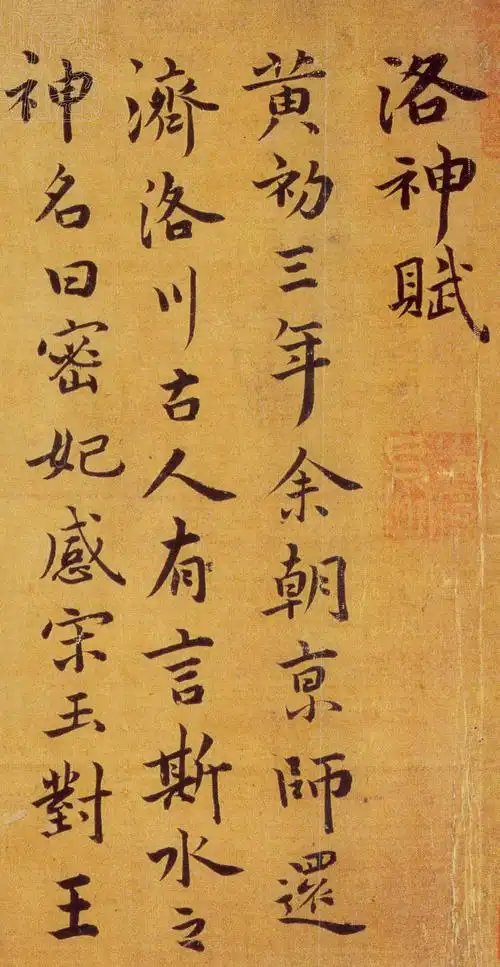 洛神賦
黄初三年余朝京師還
濟洛川古人有言斯水之
神名曰密妃感宋玉對王